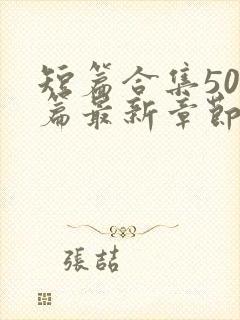 短篇合集50
篇最新章節
張喆